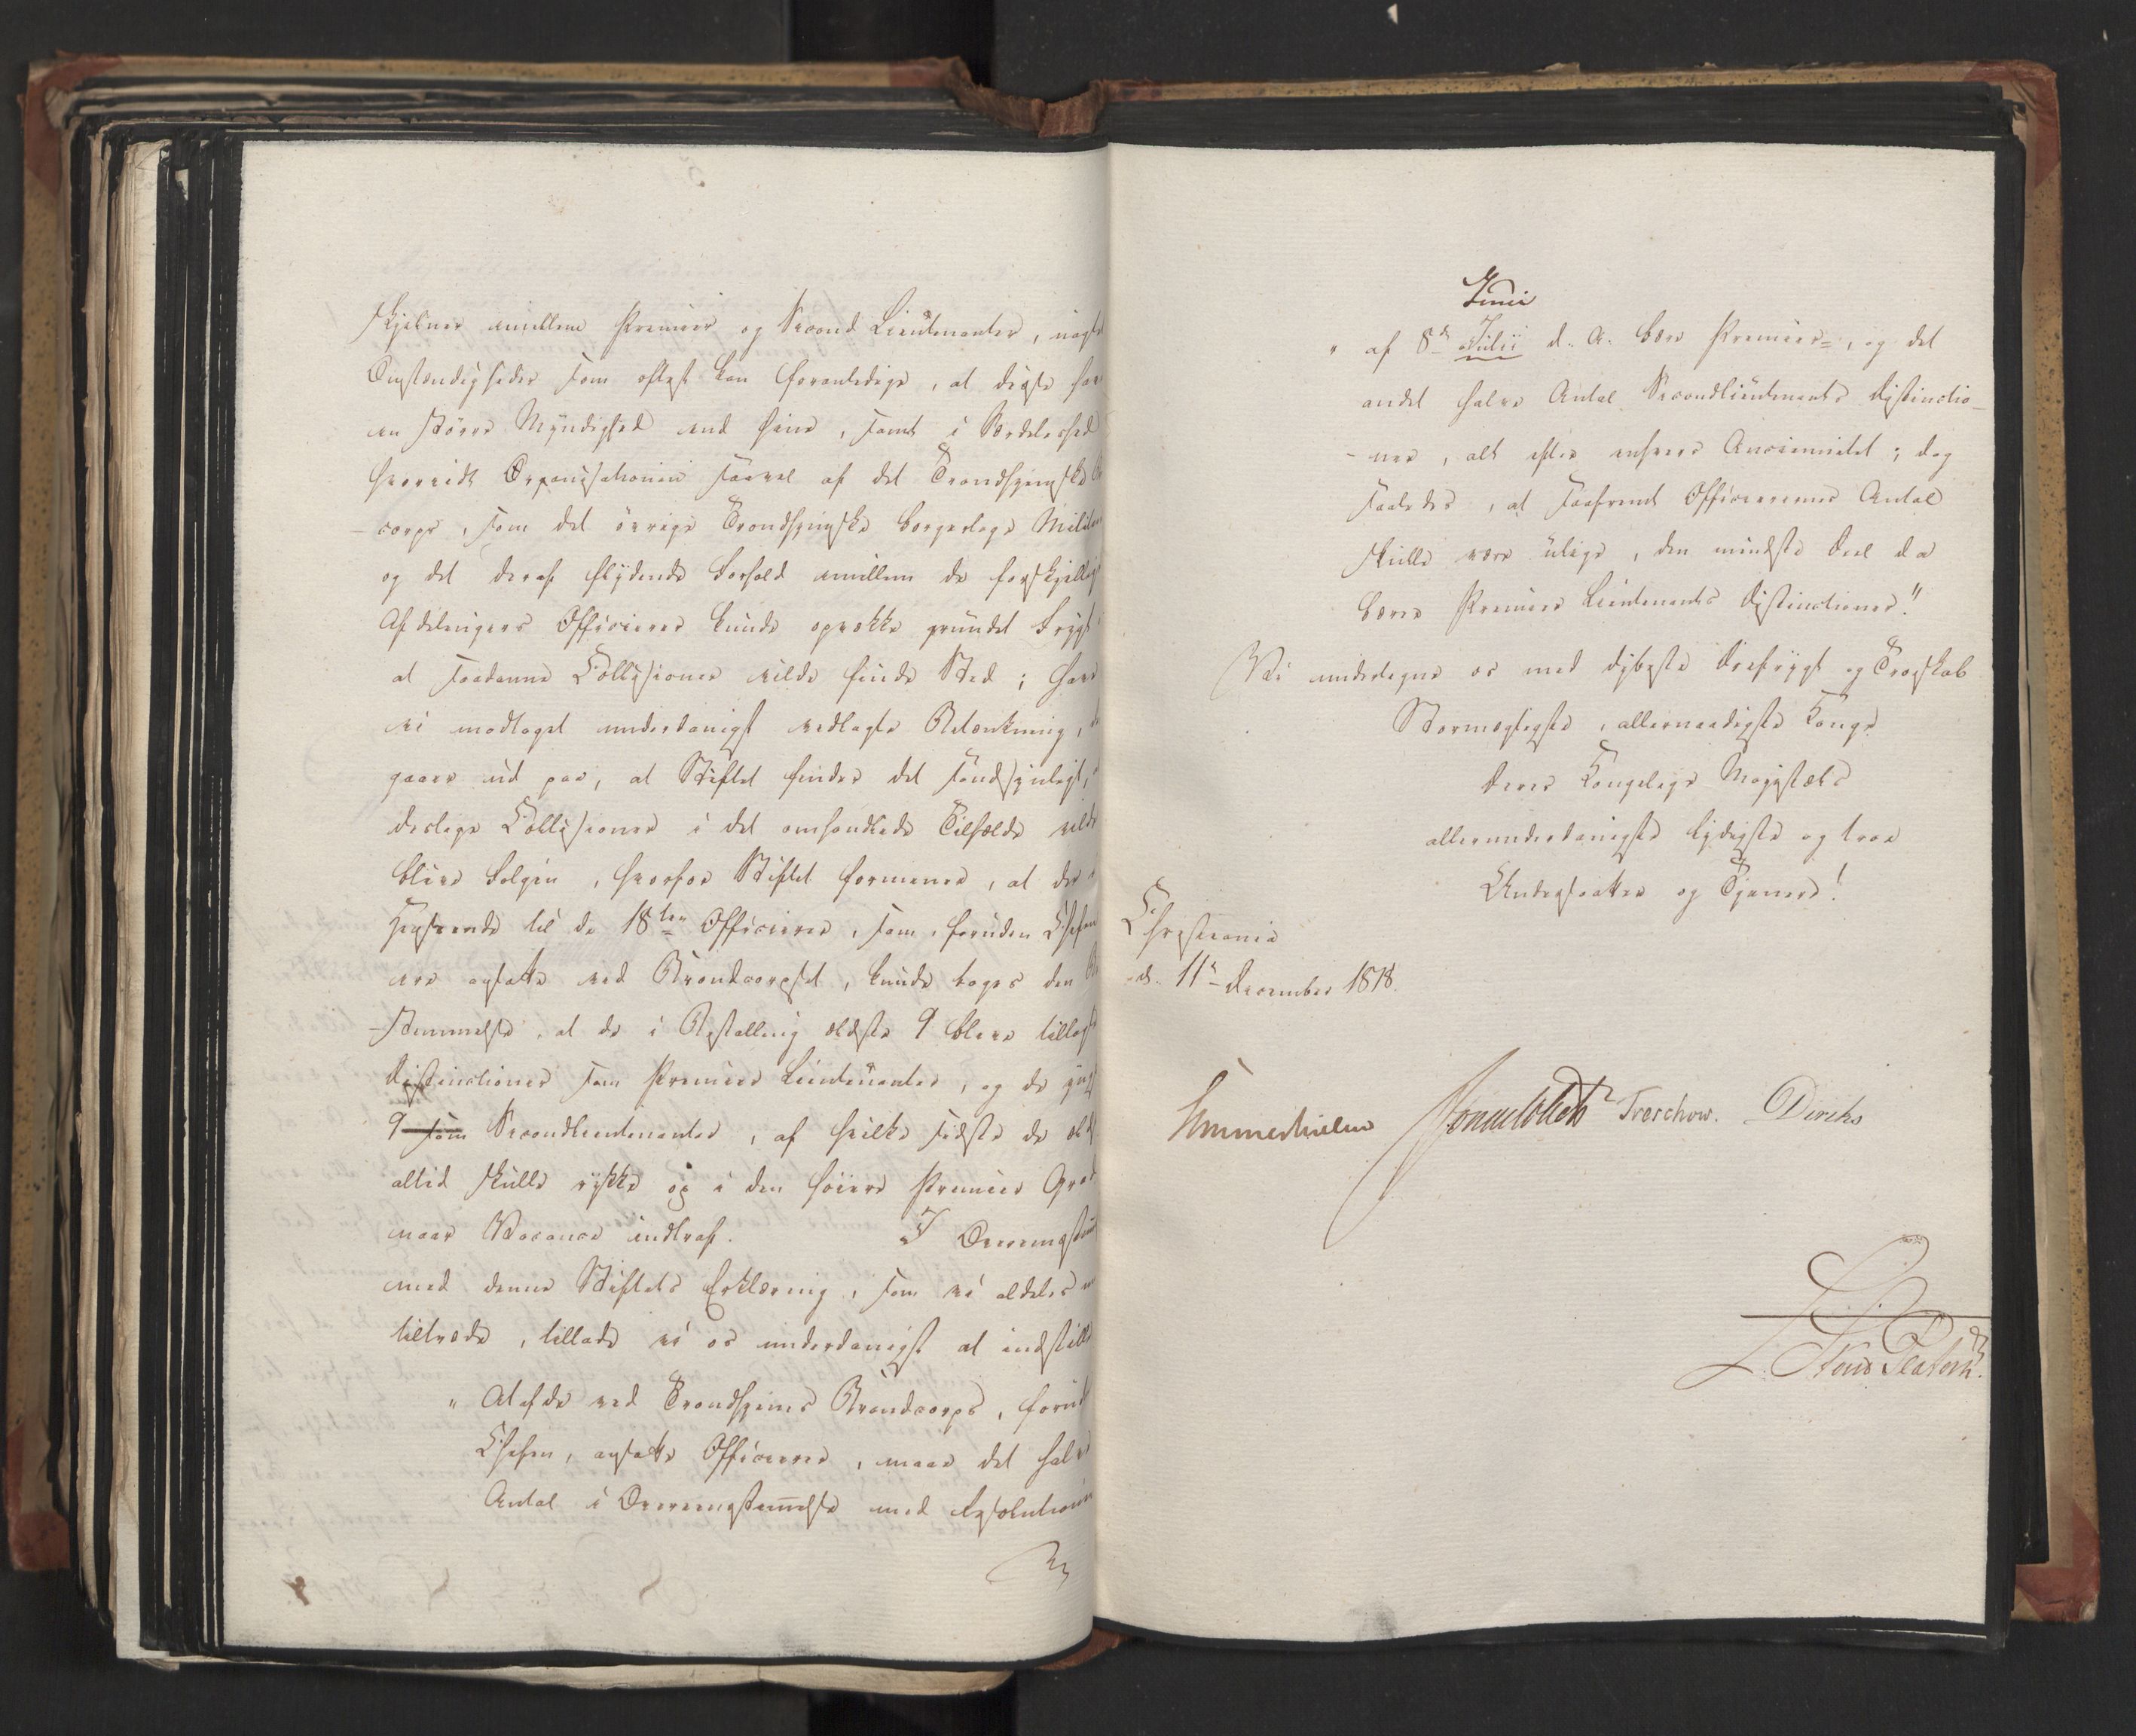 skjelner imellem Premier og Second Lieutenanter,
Omstændigheder som oftest kan foranledige, at disse
en større Myndighed end hine, samt i Særdeleshed
hvorvidt Organisationen saavel af det Trondhjemske
-corps, som det øvrige Trondhjemske borgerlige Milit
og det deraf flydende Forhold imellem de forskjellig
Afdelingers Officierer kunde opvække grundet Frygt
at saadanne Collisioner vilde finde Sted; har
vi modtaget underdanigst vedlagte Betænkning,
gaaer ud paa, at Stiftet finder det sandsynligt,
deslige Collisioner i det omhandlede Tilfælde vilde
blive Følgen, hvorfor Stiftet formener, at der
Henseende til de 18ten Officierer, som, foruden Chefen
ere ansatte ved Brandcorpset, kunde tages den Be
-stemmelse, at de i Bestalling ældste 9 bleve tillagt
Distinctioner som Premier Lieutenanter, og de yngs
9 som Secondlieutenanter, af hvilke sidste de æld
altid skulle rykke op i den høiere Premier Grad
naar Vacance indtraf. I Overeensstem
med denne Stiftets Erklæring, som vi aldeles
tiltræde, tillade vi os underdanigst at indstille
" At af de ved Trondhjems Brandcorps, forud
Chefen, ansatte Officierer, maae det halve
Antal i Overeensstemmelse med Resolutionen
af
Junii
" af 8de Julii d. A. bære Premier-, og det
andet halve Antal Secondlieutenants Distinctio-
- ner, alt efter enhvers Anciennitet; dog
saaledes, at saafremt Officierernes Antal
skulle være ulige, den mindste Deel da
bærer Premier Lieutenants Distinctioner."
Vi undertegne os med dybeste Ærefrygt og Troskab
Stormægtigste, allernaadigste Konge
Deres Kongelige Majestæts
allerunderdanigste lydigste og troe
Undersaatter og Tjenere!
Christiania
d. 11te December 1818.
Sommerhielm Treschow. Diriks